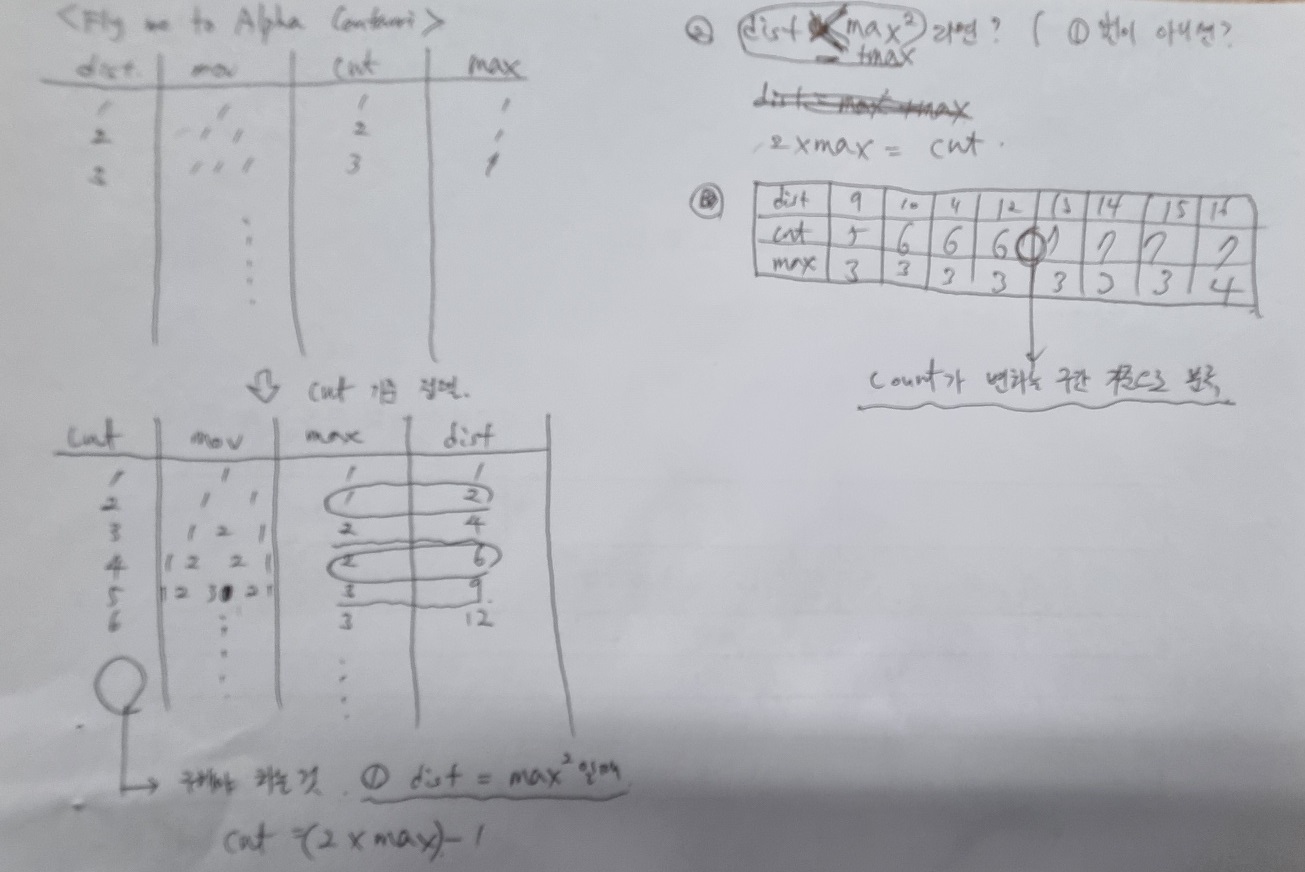 <Fly me to Alpha Centauri>
dist. mov cnt max
1 1 1 1
2 1 1 2 1
3 1 1 1 3 1
cnt 기준 정렬.
cnt mov max dist
1 1 1 1
2 1 1 1 2
3 1 2 1 2 4
4 1 2 2 1 2 6
5 1 2 3 2 1 3 9
6 3 12
구해야 하는 것. ① dist = max² 일때
cnt = (2 x max) - 1
② dist max² 라면? ( ① 번이 아니면?
= +max
dist = max² + max
2 x max = cnt.
dist 9 10 11 12 13 14 15 16
cnt 5 6 6 6 7 7 7 7
max 3 3 3 3 3 3 3 4
count가 변하는 구간 기준으로